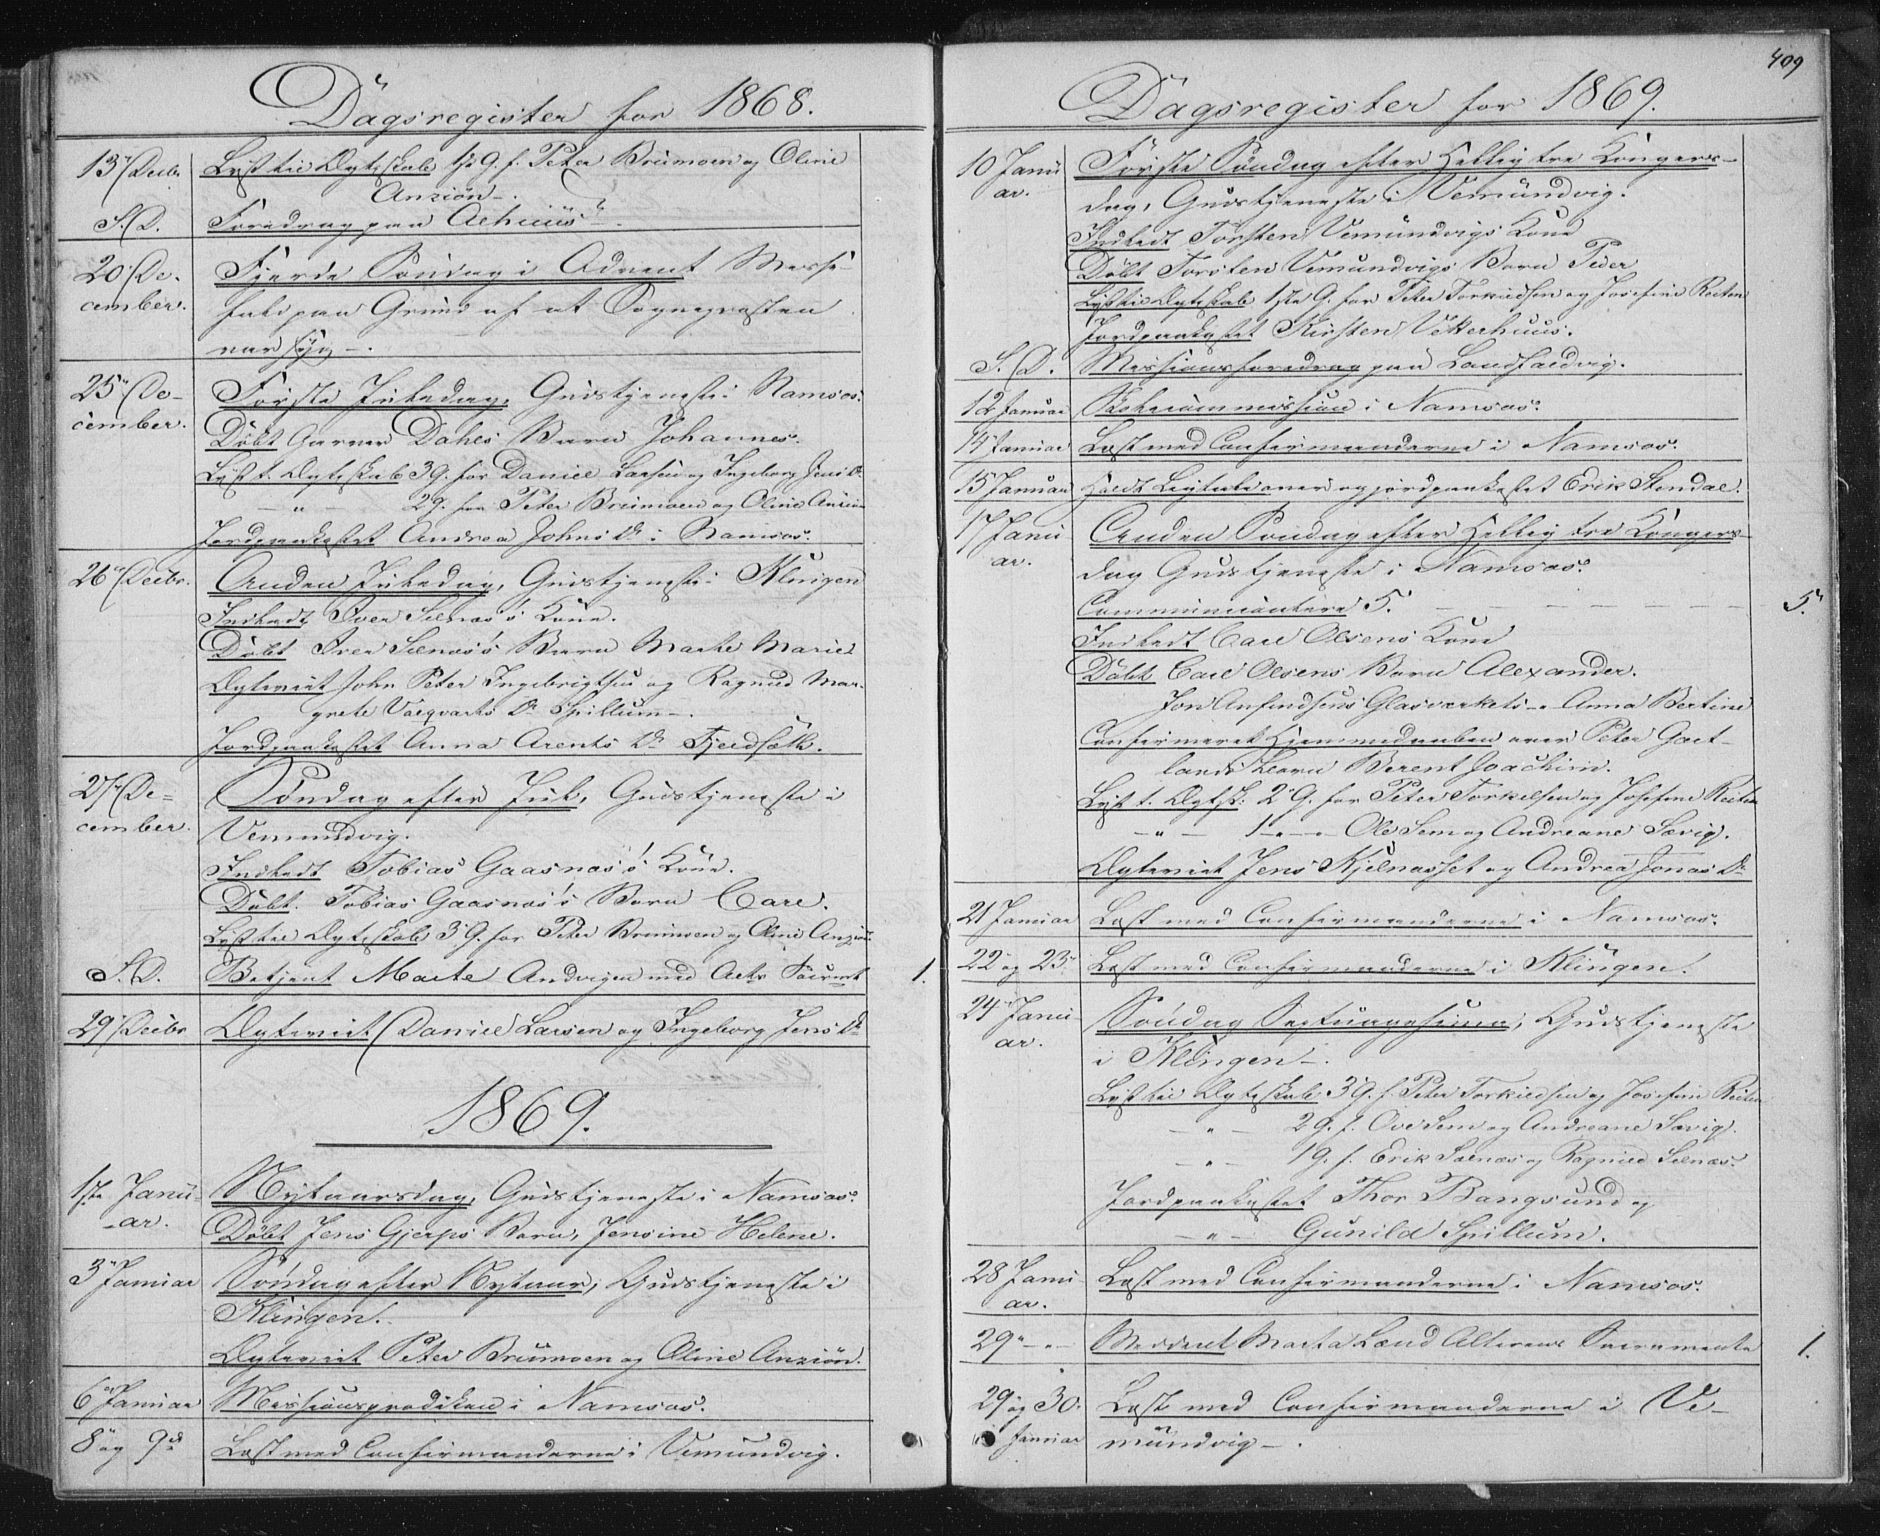 Dagsregister for 1868.
13/Decbr. Lyst til Ægteskab 1ste G. f. Peter Breimoen og Oline
Anziøn.
S. D. Foredrag paa Aehuus.
20 De- Fjerde Søndag i Advent Messe-
cember. fald paa Grund af at Sognepræsten
var syg.
25 De- Første Juledag, Gudstjeneste i Namsos.
cember. Døbt Garver Dahls Barn Johannes.
Lyst t. Ægteskab 3 G. for Daniel Larsen og Ingeborg Jens D.
— " — 2 G. for Peter Breimoen og Oline Anziøn
Jordpaakastet Andrea Johns D. i Namsos.
26 Decbr. Anden Juledag, Gudstjeneste i Klingen
Indledt Iver Selnæs's Kone.
Døbt Iver Selnæs's Barn Marthe Marie
Ægteviet John Peter Ingebrigtsen og Ragnild Mar-
grete D. Spillum.
Jordpaakastet Anna Arents D.
27 De- Søndag efter Jul, Gudstjeneste i
cember. Vemundvig.
Indledt Tobias Gaasnæs's Kone.
Døbt. Tobias Gaasnæs's Barn Carl.
Lyst til Ægteskab 3 G. for Peter Breimoen og Oline Anziøn.
S. D. Betjent Marte med Alts Sacrmt 1.
29 Decbr. Ægteviet Daniel Larsen og Ingeborg Jens D.
1869.
1ste Janu- Nytaarsdag, Gudstjeneste i Namsos.
-ar. Døbt Jens Gjerps Barn, Jensine Helene.
3 Januar Søndag efter Nytaar, Gudstjeneste i
Klingen.
Ægteviet Peter Breimoen og Oline Anziøn.
6 Januar Missionsprædiken i Namsos.
8 og 9de Læst med Confirmanderne i Vemundvig.
409
Dagsregister for 1869.
10 Janu Første Søndag efter Hellig tre Kongers-
ar. dag, Gudstjeneste i Vemundvig.
Indledt Torsten Vemundvigs Kone
Døbt Torsten Vemundvigs Barn Peder
Lyst til Ægteskab 1ste G. for Peter Torkildsen og Josefine Reiten
Jordpaakastet Kirsten Vetterhuus.
S. D. Missionsforedrag paa
12 Januar Skolecommission i Namsos.
14 Januar Læst med Confirmanderne i Namsos.
15 Januar Holdt Ligtale over og jordpaakastet Erik Stendal.
17 Janu Anden Søndag efter Hellig tre Kongers
ar. dag Gudstjeneste i Namsos.
Communicantere 5. — — — — 5.
Indledt Carl Olsens Kone
Døbt Carl Olsens Barn Alexander.
Jon Anfindsens Glasværkets — " Anna Bertine
Confirmeret Hjemmedaaben over Peter Gaet-
lands Barn Berent Joachim.
Lyst t. Ægtsk. 2 G. for Peter Torkelsen og Josefine Reiten
— " — 1 — " — " Ole Sem og Andreane Sævig.
Ægteviet Jens Kjelnæsset og Andrea Jonas D.
21 Januar Læst med Confirmanderne i Namsos.
22 og 23 Læst med Confirmanderne i Klingen.
24 Janu- Søndag Septuagesima, Gudstjeneste
ar. i Klingen.
Lyst til Ægteskab 3 G. f. Peter Torkildsen og Josefine Reiten
— " — 2 G. f. Ove Sem og Andreane Sævig.
— " — 1 G. f. Erik Selnæs og Ragnild Selnæs.
Jordpaakastet Thor Bangsund og
— " — Gunild Spillum.
28 Janu Læst med Confirmanderne i Namsos.
ar.
29 — " — Meddeelt Marta Lænd Alterens Sacramente 1.
29 og 30. Læst med Confirmanderne i Ve-
Januar mundvig.